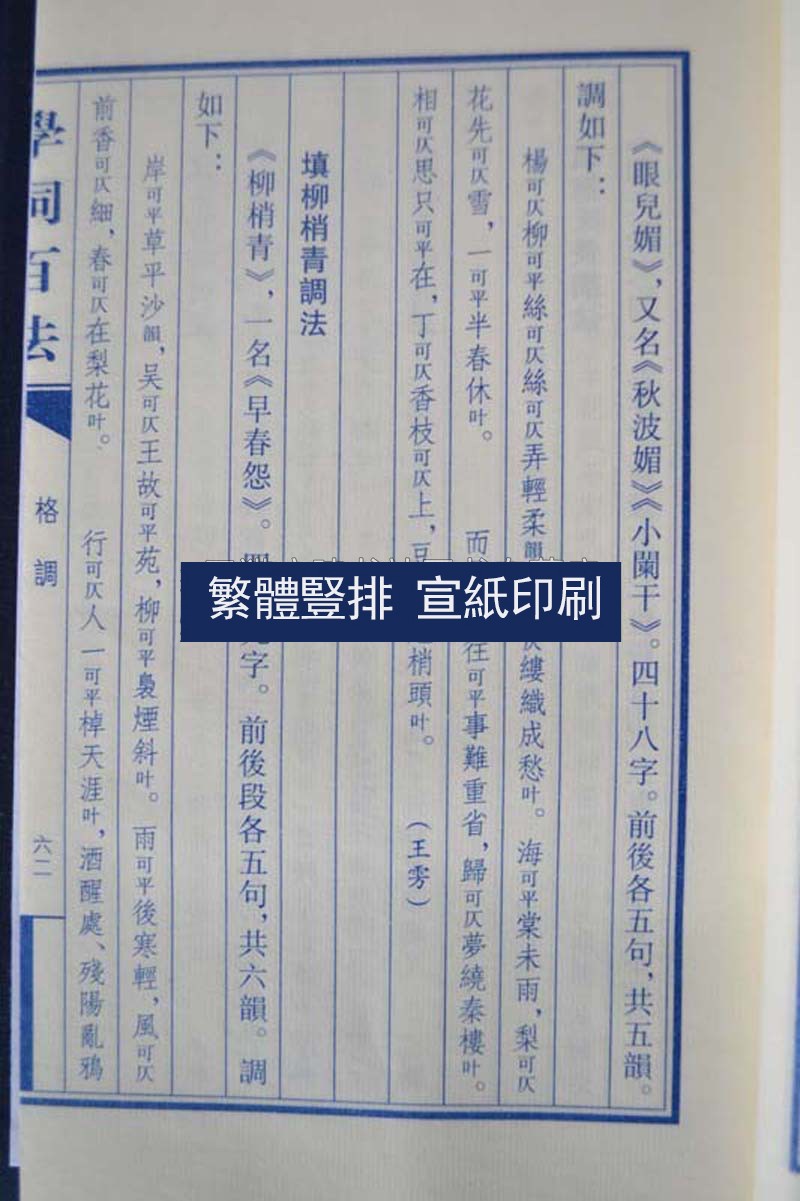 《眼兒媚》，又名《秋波媚》《小闌干》。四十八字。前後各五句，共五韻。
調如下：
楊可仄柳可平絲可仄絲可仄弄輕柔韻 縷織成愁叶。海可平棠未雨，梨可仄
花先可仄雪，一可平半春休叶。 而 往可平事難重省，歸可仄夢繞秦樓叶。
相可仄思只可平在，丁可仄香枝可仄上，豆 梢頭叶。 （王雱）
填柳梢青調法
《柳梢青》，一名《早春怨》。 字。前後段各五句，共六韻。調
如下：
岸可平草平沙韻，吴可仄王故可平苑，柳可平裊煙斜叶。雨可平後寒輕，風可仄
前香可仄細，春可仄在梨花叶。 行可仄人一可平棹天涯叶，酒醒處、殘陽亂鴉
學詞百法
格調
六二
繁體豎排 宣紙印刷